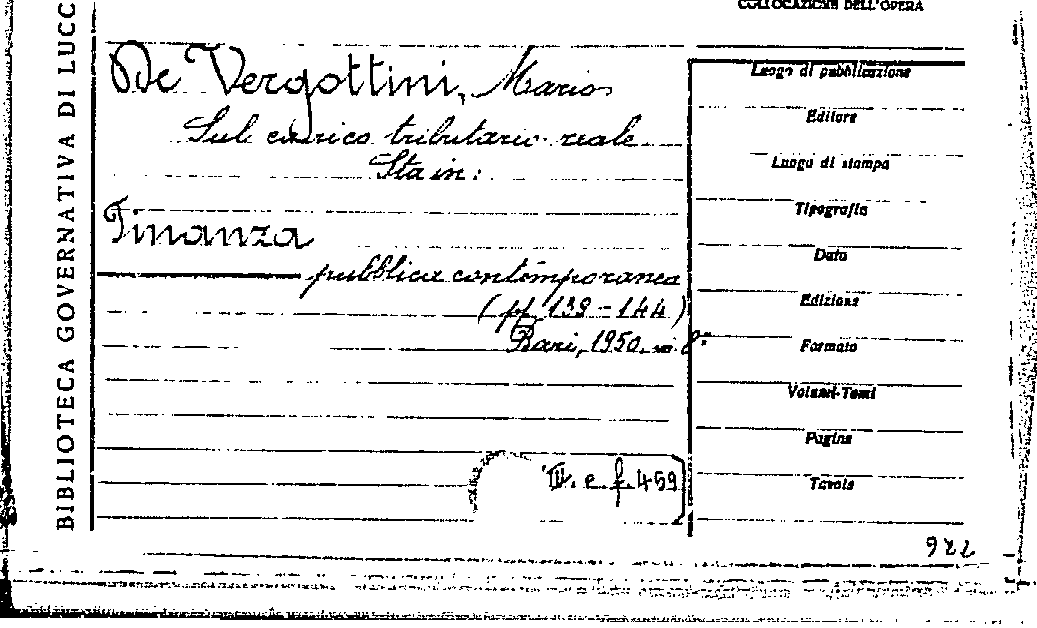 BIBLIOTECA GOVERNATIVA DI LUCC
COLLOCAZIONE DELL'OPERA
De Vergottini, Mario
Sul carico tributario reale
Sta in:
Finanza
pubblica contemporanea
(pp. 139-144)
Bari, 1950. in 8°
III. e. f. 459
Luogo di pubblicazione
Editore
Luogo di stampa
Tipografia
Data
Edizione
Formato
Volumi-Tomi
Pagine
Tavole